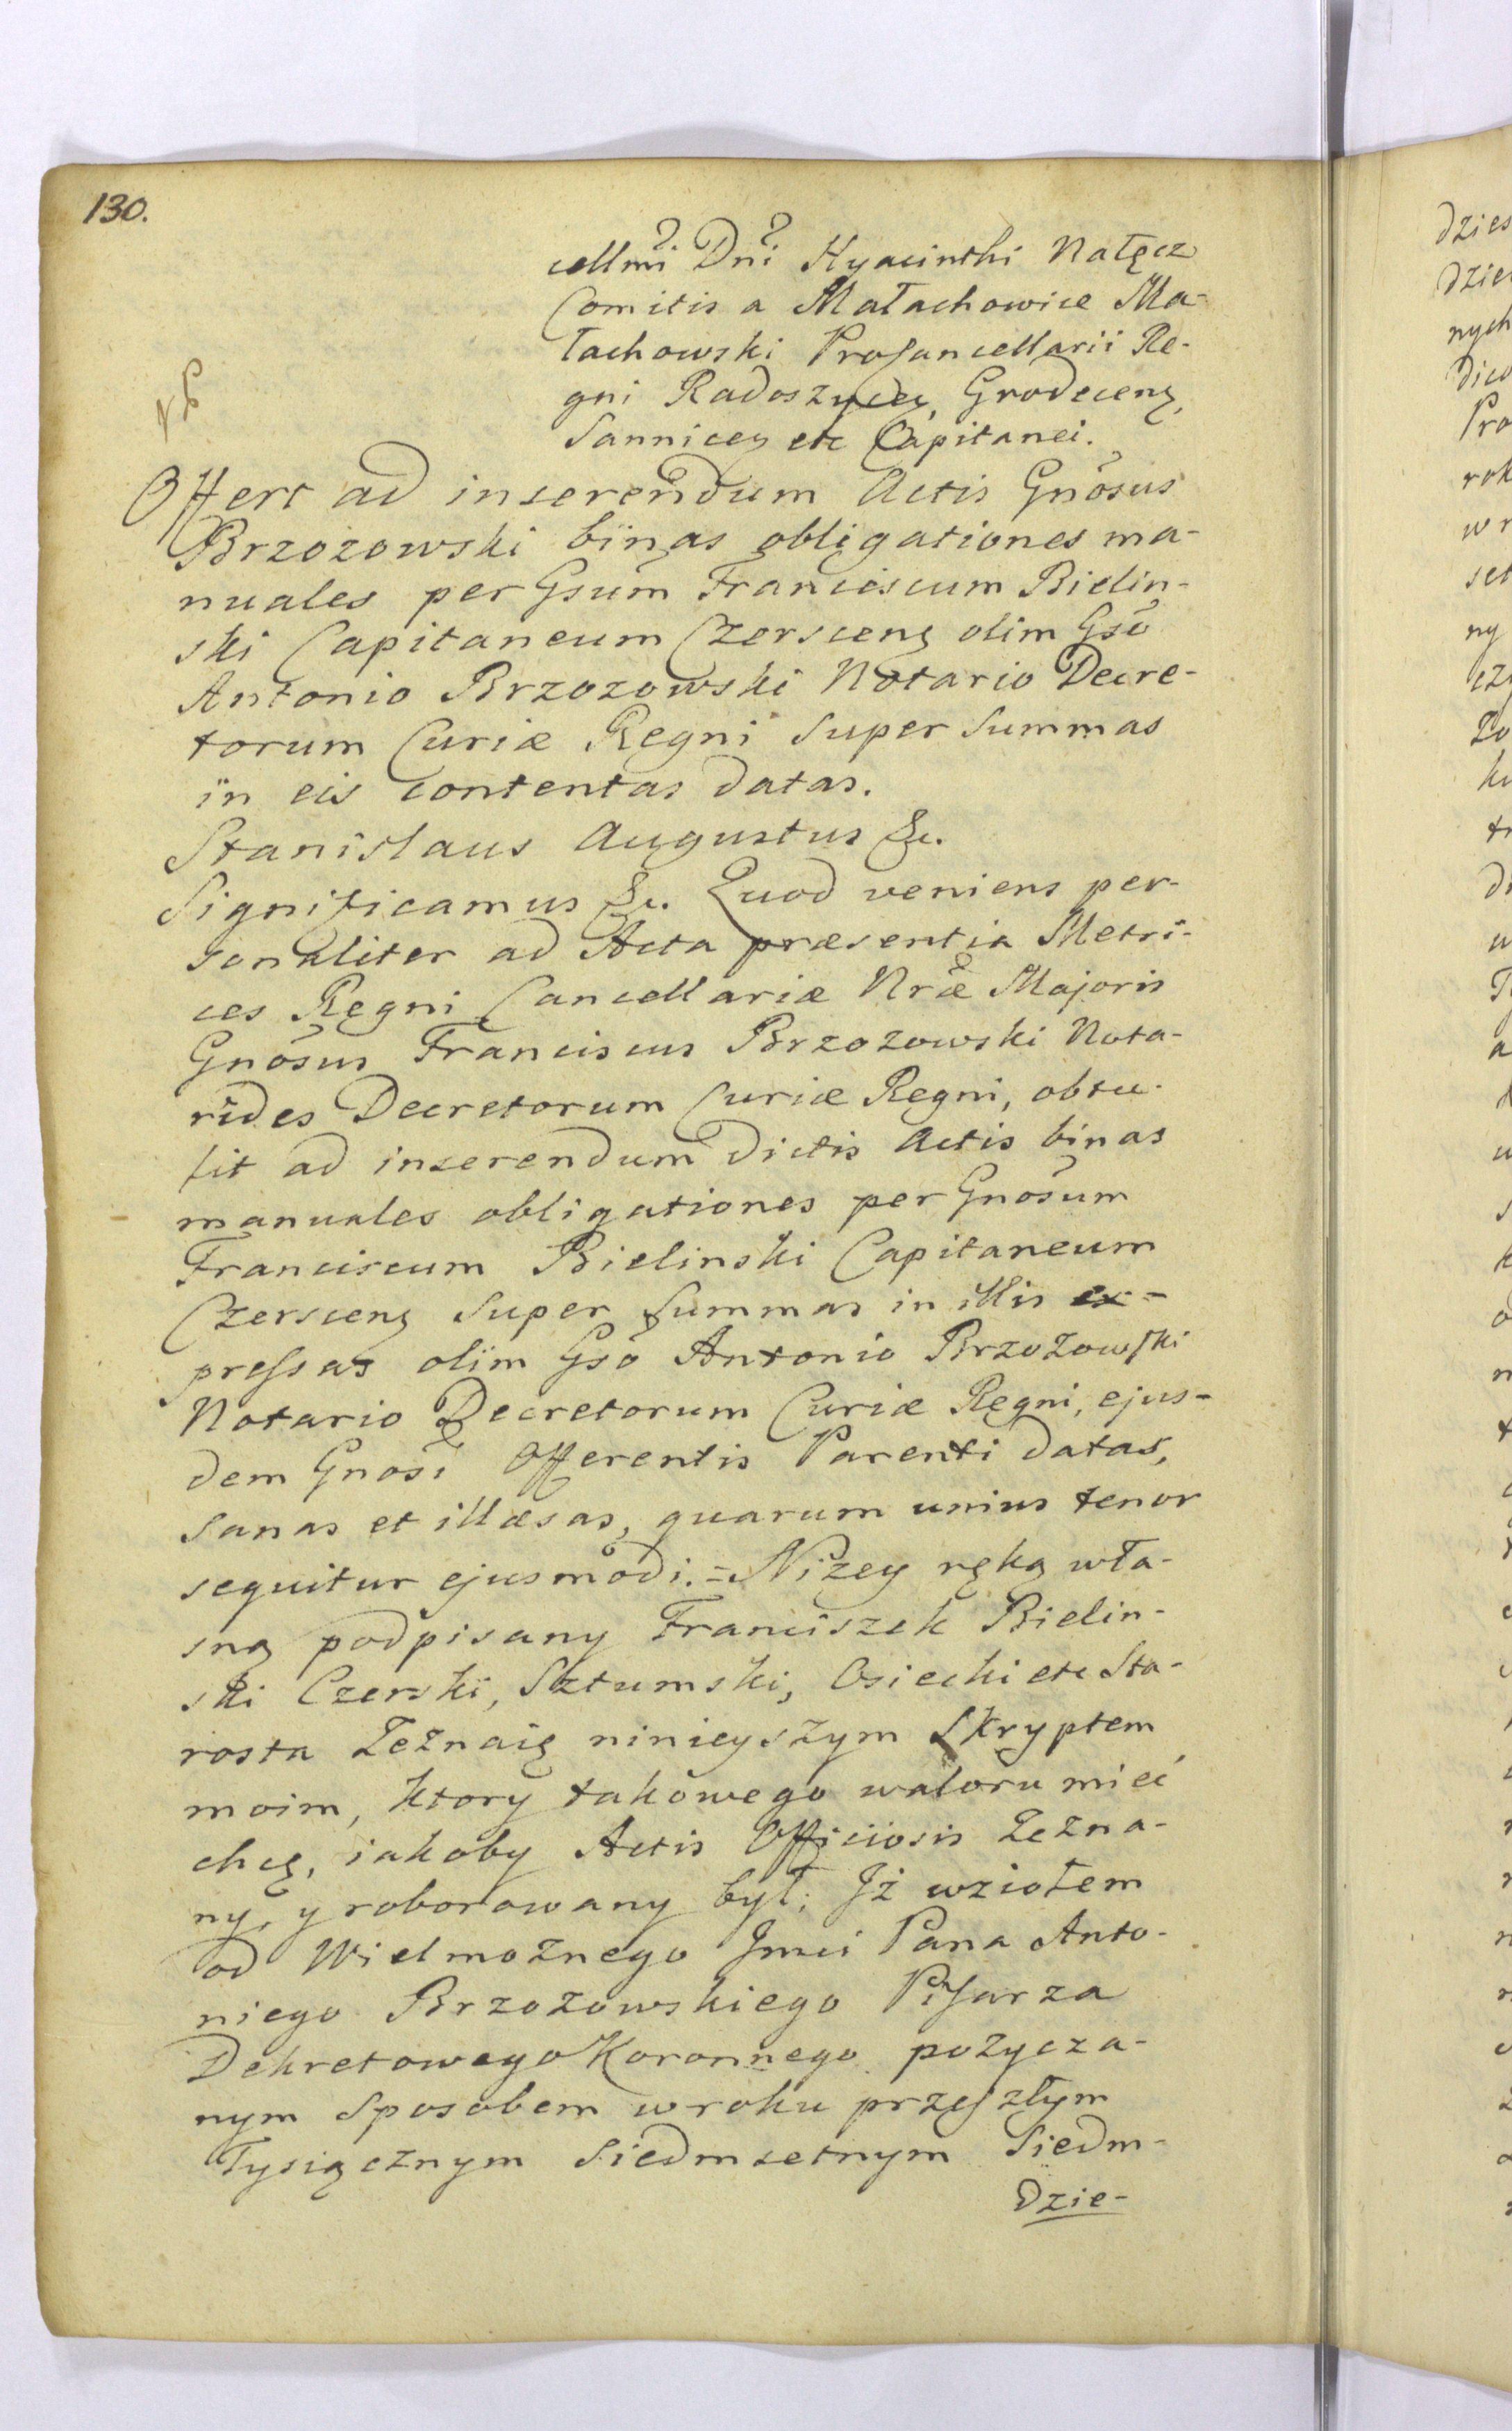 130.
cellmi Dni Hyacinthi Nałęcz
Comitis a Małachowice Ma-
łachowski Procancellarii Re-
gni Radoszycen, Grodecens,
Sannicen etc Capitanei.
NB
Offert ad inserendum Actis Gnosus
Brzozowski binas obligationes ma-
nuales per Gsum Franciscum Bielin-
ski Capitaneum Czerscens olim Gso
Antonio Brzozowski Notario Decre-
torum Curiæ Regni super Summas
in eis contentas datas.
Stanislaus Augustus &c.
Significamus &c. Quod veniens per-
sonaliter ad Acta præsentia Metri-
ces Regni Cancellariæ Nræ Majoris
Gnosus Franciscus Brzozowski Nota-
rides Decretorum Curiæ Regni, obtu-
lit ad inserendum dictis Actis binas
manuales obligationes per Gnosum
Franciscum Bielinski Capitaneum
Czerscens super Summas in illis ex-
pressas olim Gso Antonio Brzozowski
Notario Decretorum Curiæ Regni, ejus-
dem Gnosi Offerentis Parenti datas,
sanas et illæsas, quarum unius tenor
sequitur ejusmodi.=Niżey ręką wła-
sną podpisany Franciszek Bielin-
ski Czerski, Sztumski, Osiecki etc Sta-
rosta Zeznaię ninieyszym Skryptem
moim, ktory takowego waloru mieć
chcę, iakoby Actis Officiosis Zezna-
ny, y roborowany był: Iż wziołem
od Wielmożnego Jmci Pana Anto-
niego Brzozowskiego Pisarza
Dekretowego Koronnego pożycza-
nym sposobem w roku przeszłym
Tysiącznym Siedmsetnym Siedm-
dzie-
dzies
nych
Pro
rok
w r
set
ny